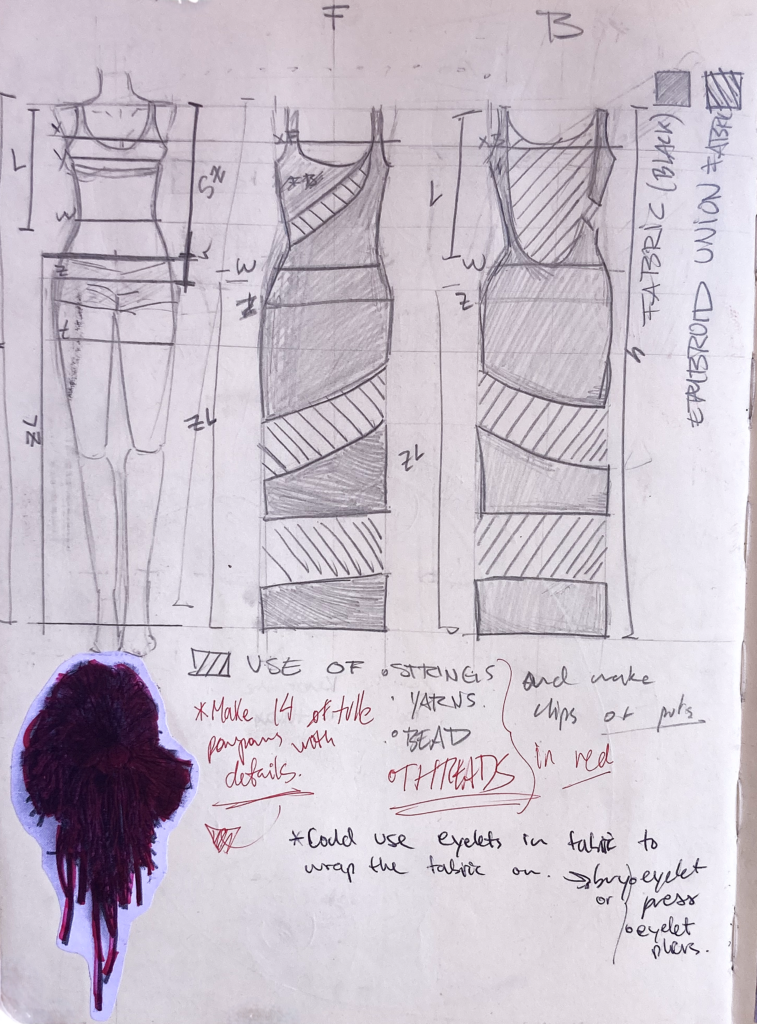 F
B
FABRIC (BLACK)
EMBROID UNION FABRIC
X
Y
W
Z
L
W
Z
L
W
Z
USE OF • STRINGS
• YARNS.
• BEAD
• THREADS
and make
clips or
in red
*Make 14 of tulle
pompoms with
details.
*Could use eyelets in fabric to
wrap the fabric on. → buy • eyelet
or press
• eyelet
pliers.